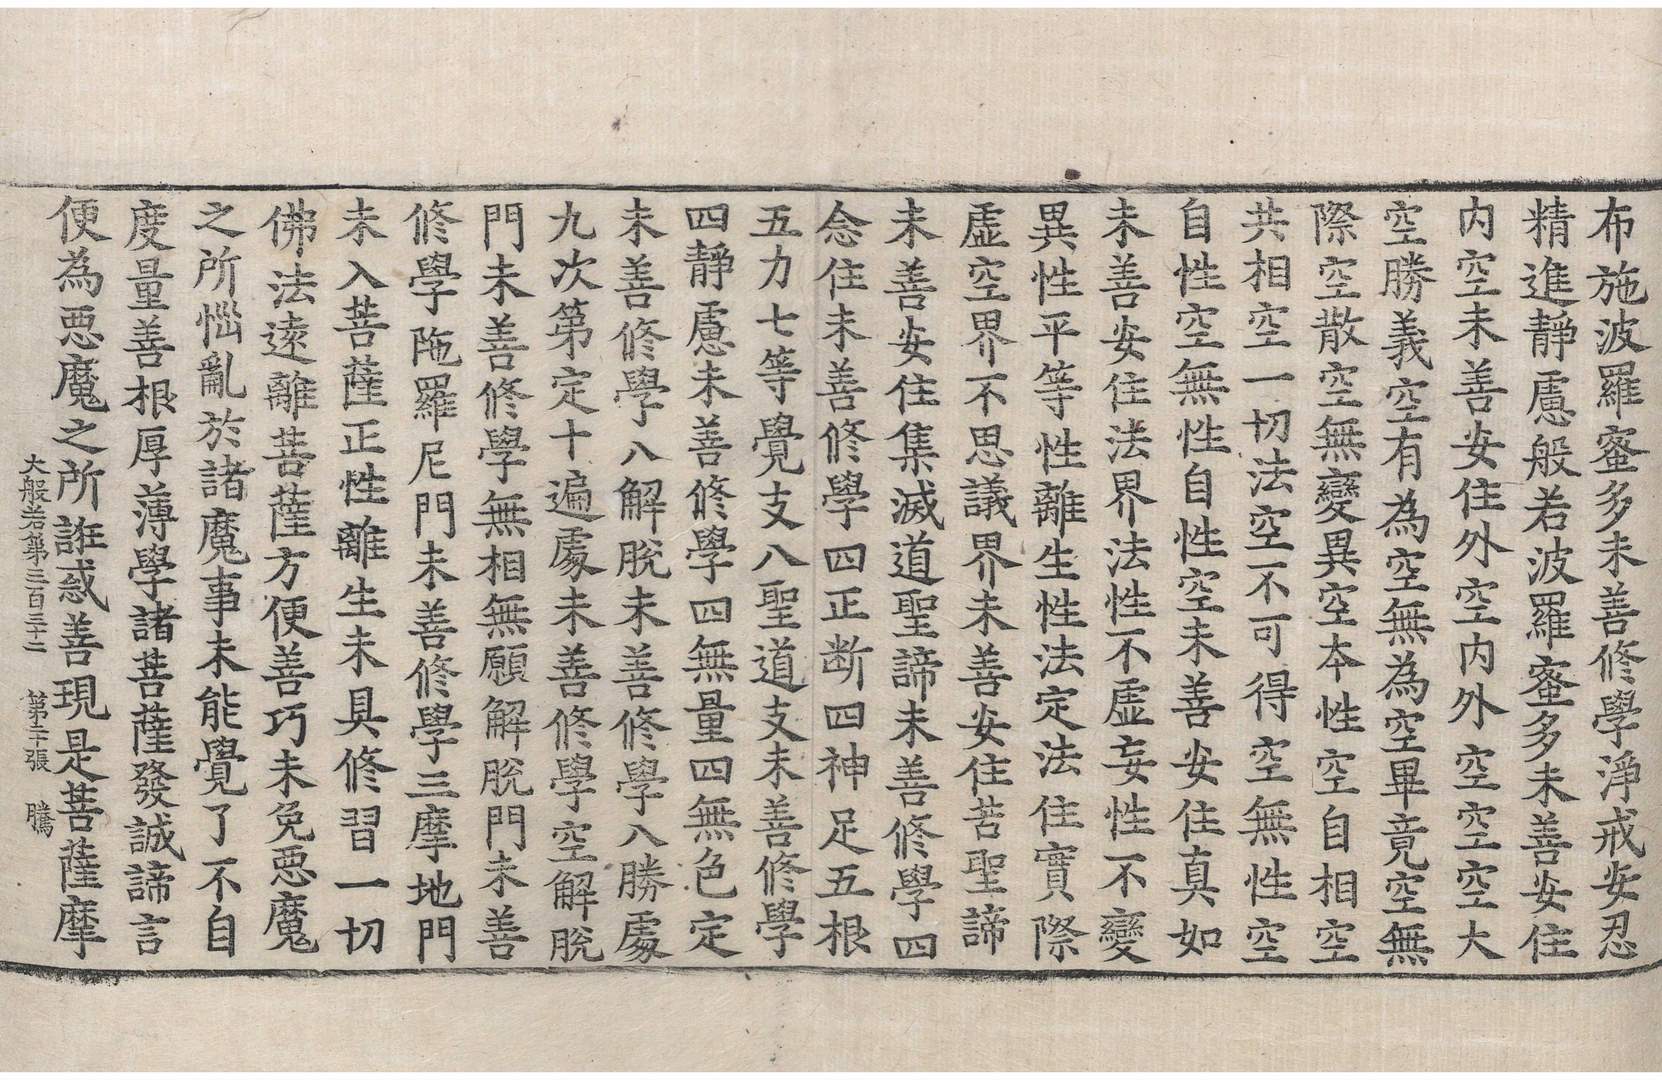 布施波羅蜜多未善修學淨戒安忍
精進靜慮般若波羅蜜多未善安住
内空未善安住外空内外空空空大
空勝義空有為空無為空畢竟空無
際空散空無變異空本性空自相空
共相空一切法空不可得空無性空
自性空無性自性空未善安住真如
未善安住法界法性不虛妄性不變
異性平等性離生性法定法住實際
虛空界不思議界未善安住苦聖諦
未善安住集滅道聖諦未善修學四
念住未善修學四正断四神足五根
五力七等覺支八聖道支未善修學
四靜慮未善修學四無量四無色定
未善修學八解脫未善修學八勝處
九次第定十遍處未善修學空解脫
門未善修學無相無願解脫門未善
修學陁羅尼門未善修學三摩地門
未入菩薩正性離生未具修習一切
佛法遠離菩薩方便善巧未免惡魔
之所惱亂於諸魔事未能覺了不自
度量善根厚薄學諸菩薩發誠諦言
便為惡魔之所誑惑善現是菩薩摩
大般若第三百三十二 第二十張 騰